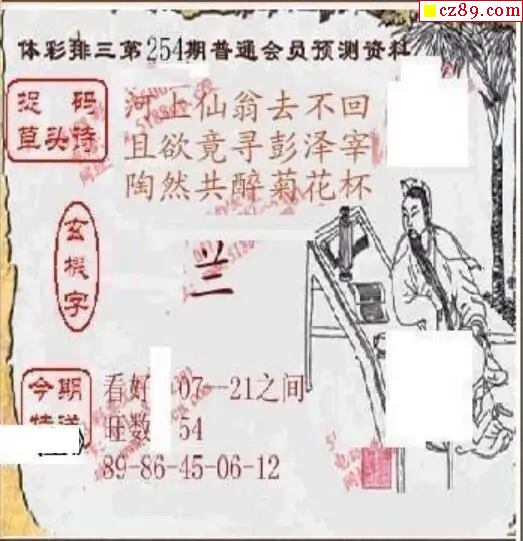 cz89.com
体彩排三第254期普通会员预测资料
捉 码
草头诗
河上仙翁去不回
且欲竟寻彭泽宰
陶然共醉菊花杯
玄機字
兰
今期
特送
看好 07--21之间
旺数 54
89-86-45-06-12